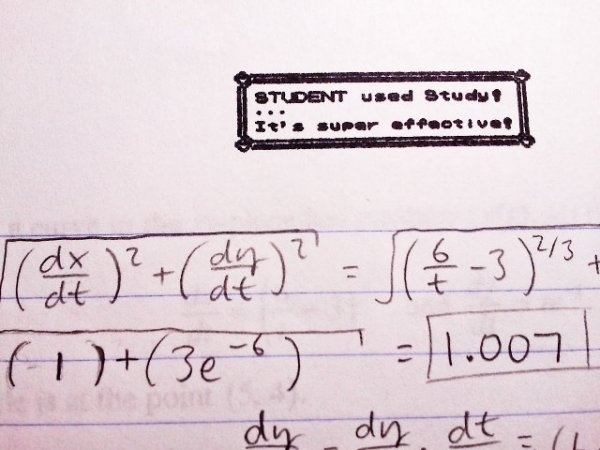 STUDENT used Study!
...
It's super effective!
√(dx/dt)² + (dy/dt)² = √(6/t - 3)^2/3 +
(-1) + (3e^-6) = 1.007
is at the point (5, 4).
dy = dy · dt = (1